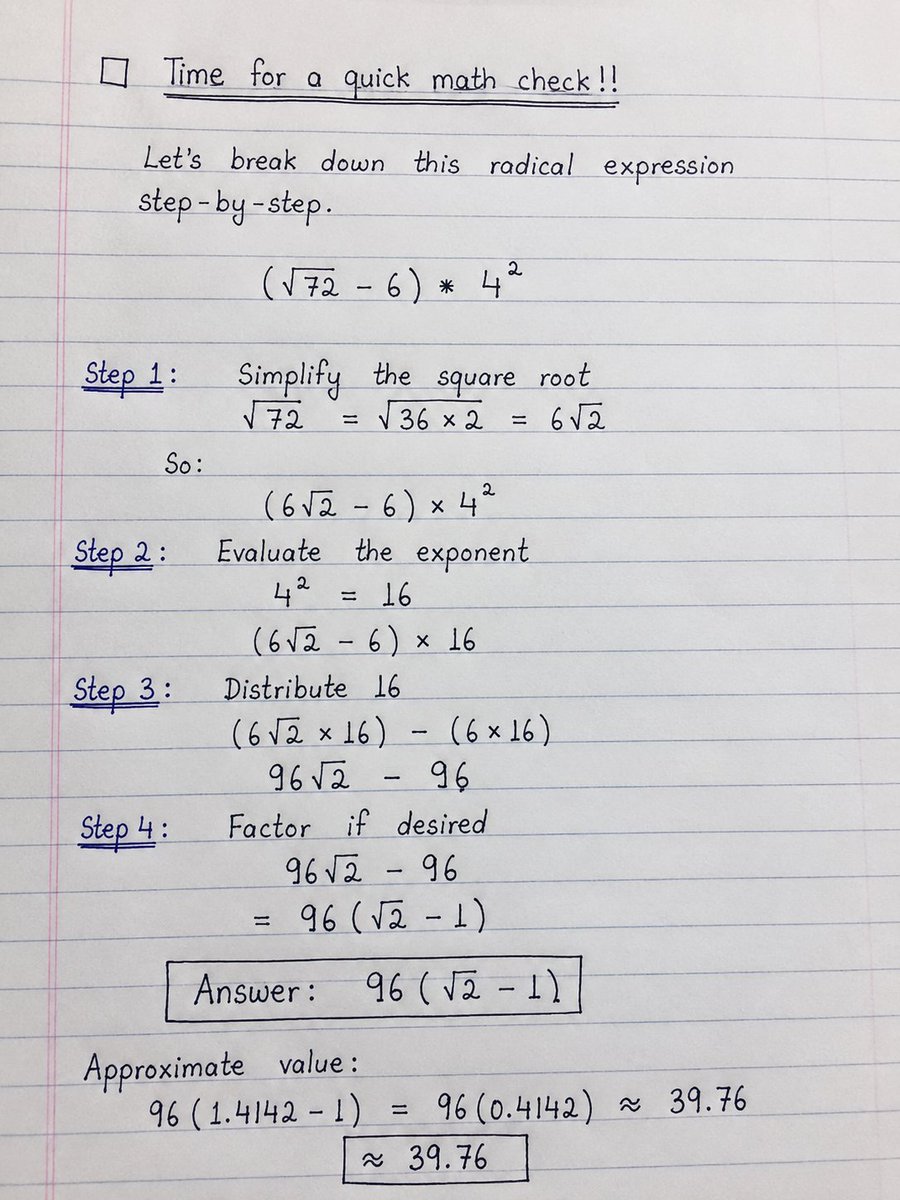 ☐ Time for a quick math check!!
Let's break down this radical expression
step-by-step.
(√72 - 6) * 4²
Step 1: Simplify the square root
√72 = √36 × 2 = 6√2
So:
(6√2 - 6) × 4²
Step 2: Evaluate the exponent
4² = 16
(6√2 - 6) × 16
Step 3: Distribute 16
(6√2 × 16) - (6 × 16)
96√2 - 96
Step 4: Factor if desired
96√2 - 96
= 96(√2 - 1)
Answer: 96(√2 - 1)
Approximate value:
96(1.4142 - 1) = 96(0.4142) ≈ 39.76
≈ 39.76